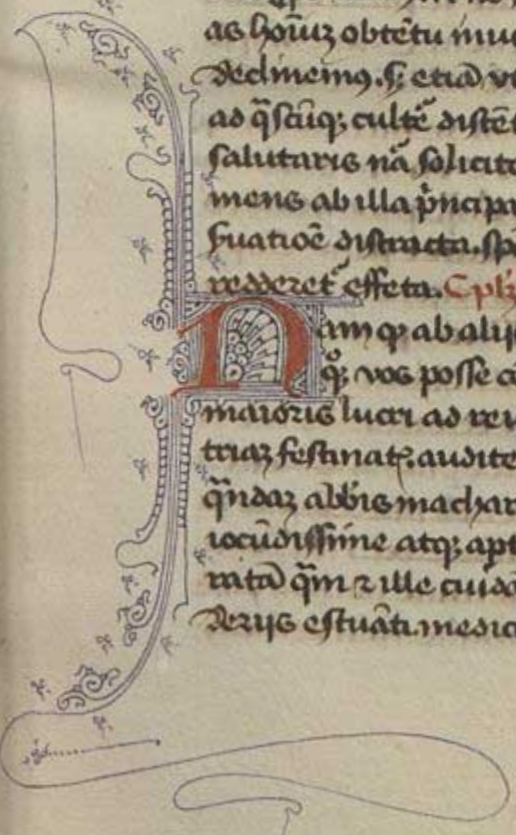 as hoīuz obtētu mu
declinemꝰ. sꝫ etiā vt
ad q̄scūqꝫ cultē distē
salutaris nā solicit
mens ab illa p̄ncipa
ẜuatiōe distracta. sp
redderet effeta. Cplꝫ
Nam qꝫ ab alij
qꝫ vos posse c
maioris lucri ad rev
triaz festinatꝭ. audite
q̄ndaz abb̄is machar
iocūdissime atqꝫ apt
rata q̄m ⁊ ille cuidā
derijs estuāti. medic